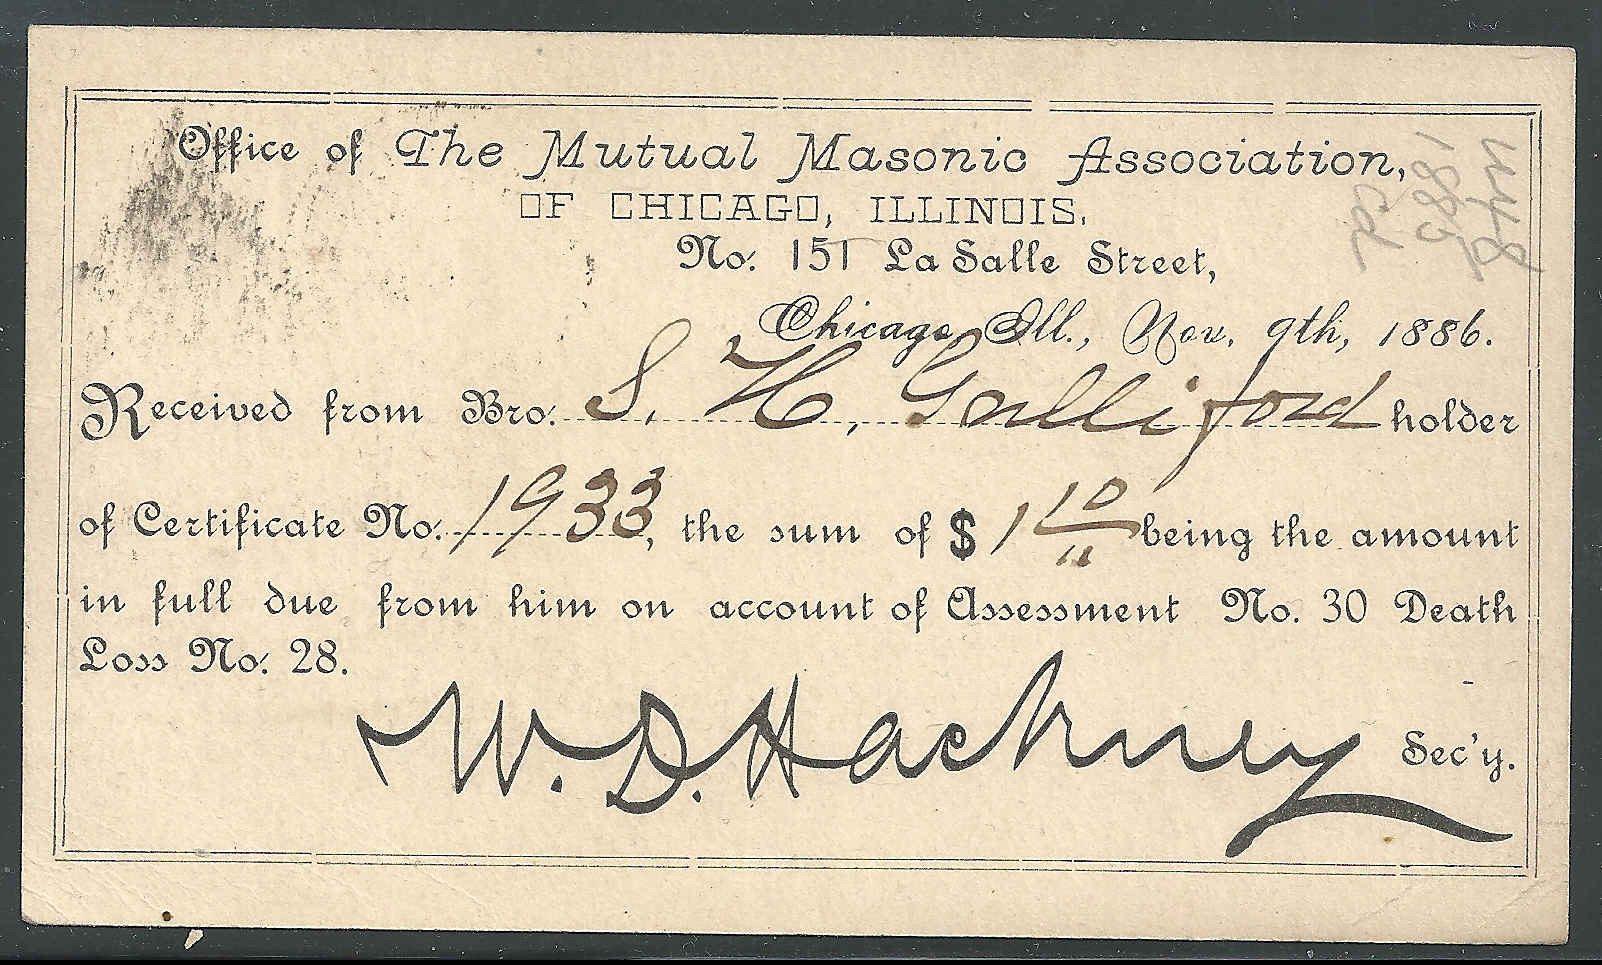 Office of The Mutual Masonic Association,
OF CHICAGO, ILLINOIS.
No. 151 La Salle Street,
Chicago, Ill., Nov. 9th, 1886.
Received from Bro. S. H. Gulliford holder
of Certificate No. 1933, the sum of $ 1 10 being the amount
in full due from him on account of Assessment No. 30 Death
Loss No. 28.
W. D. Hackney Sec'y.